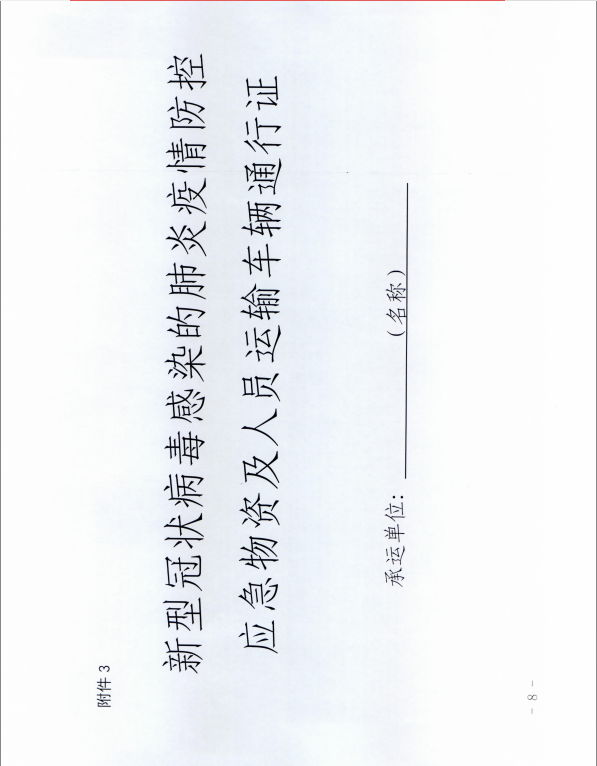 附件 3
新型冠状病毒感染的肺炎疫情防控
应急物资及人员运输车辆通行证
承运单位：（名称）
- 8 -